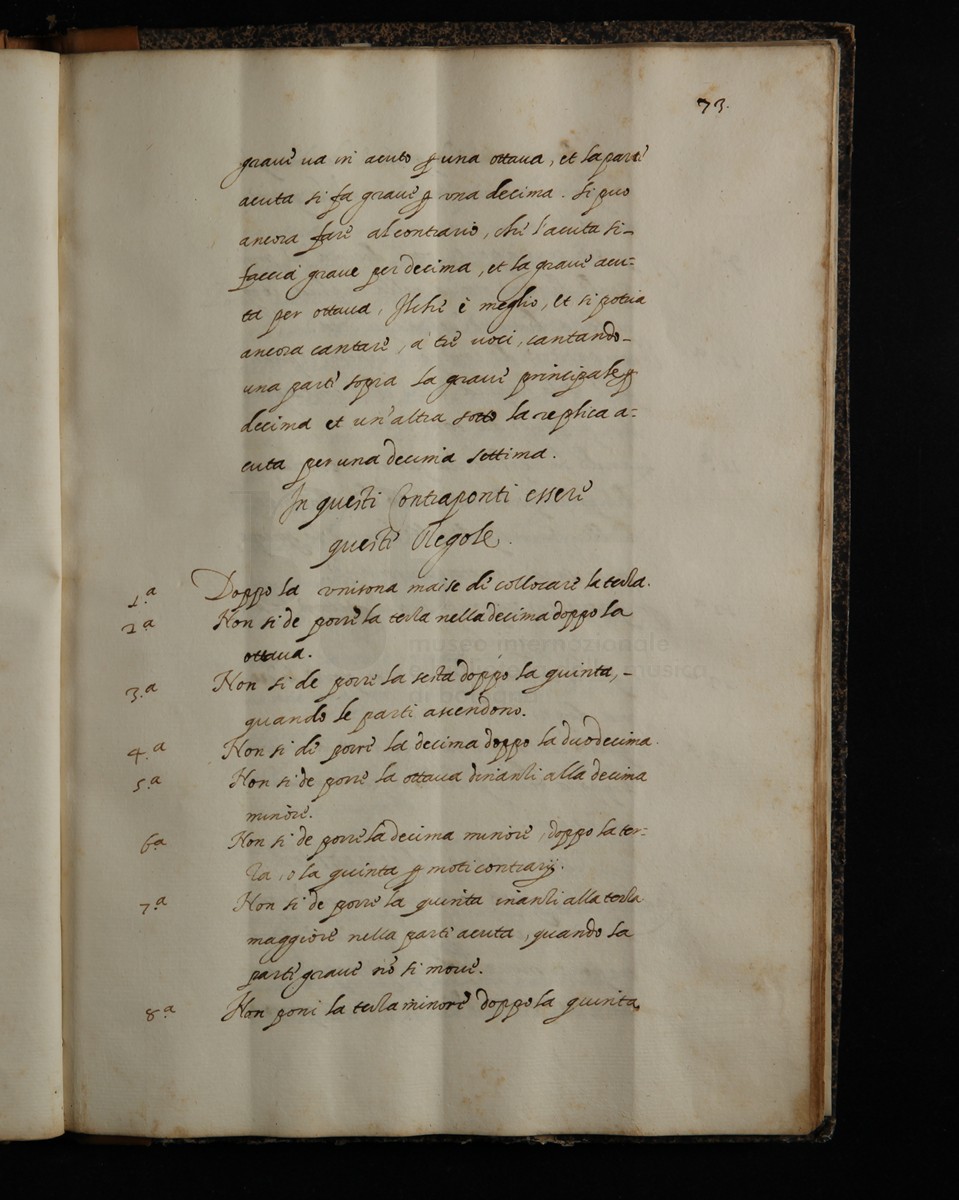 73.
graue ua in acuto p una ottaua, et la parte
acuta si fa graue p vna decima. Si puo
ancora fare al contrario, che l'acuta si-
faccia graue per decima, et la graue acu-
ta per ottaua, Ilche è meglio, et si potria
ancora cantare, a tre uoci, cantando-
una parte sopra la graue principale p
decima et un'altra sotto la replica a-
cuta per una decima settima.
In questi Contraponti essere
queste Regole.
1.a Doppo la vnisona mai se de collocare la terza.
2.a Non si de porre la terza nella decima doppo la
ottaua.
3.a Non si de porre la sesta doppo la quinta,-
quando le parti ascendono.
4.a Non si de porre la decima doppo la duodecima.
5.a Non si de porre la ottaua dinanzi alla decima
minore.
6.a Non si de porre la decima minore, doppo la ter-
za, o la quinta p moti contrarij.
7.a Non si de porre la quinta inanzi alla terza
maggiore nella parte acuta, quando la
parte graue nõ si moue.
8.a Non poni la terza minore doppo la quinta,
museo internazionale
musica